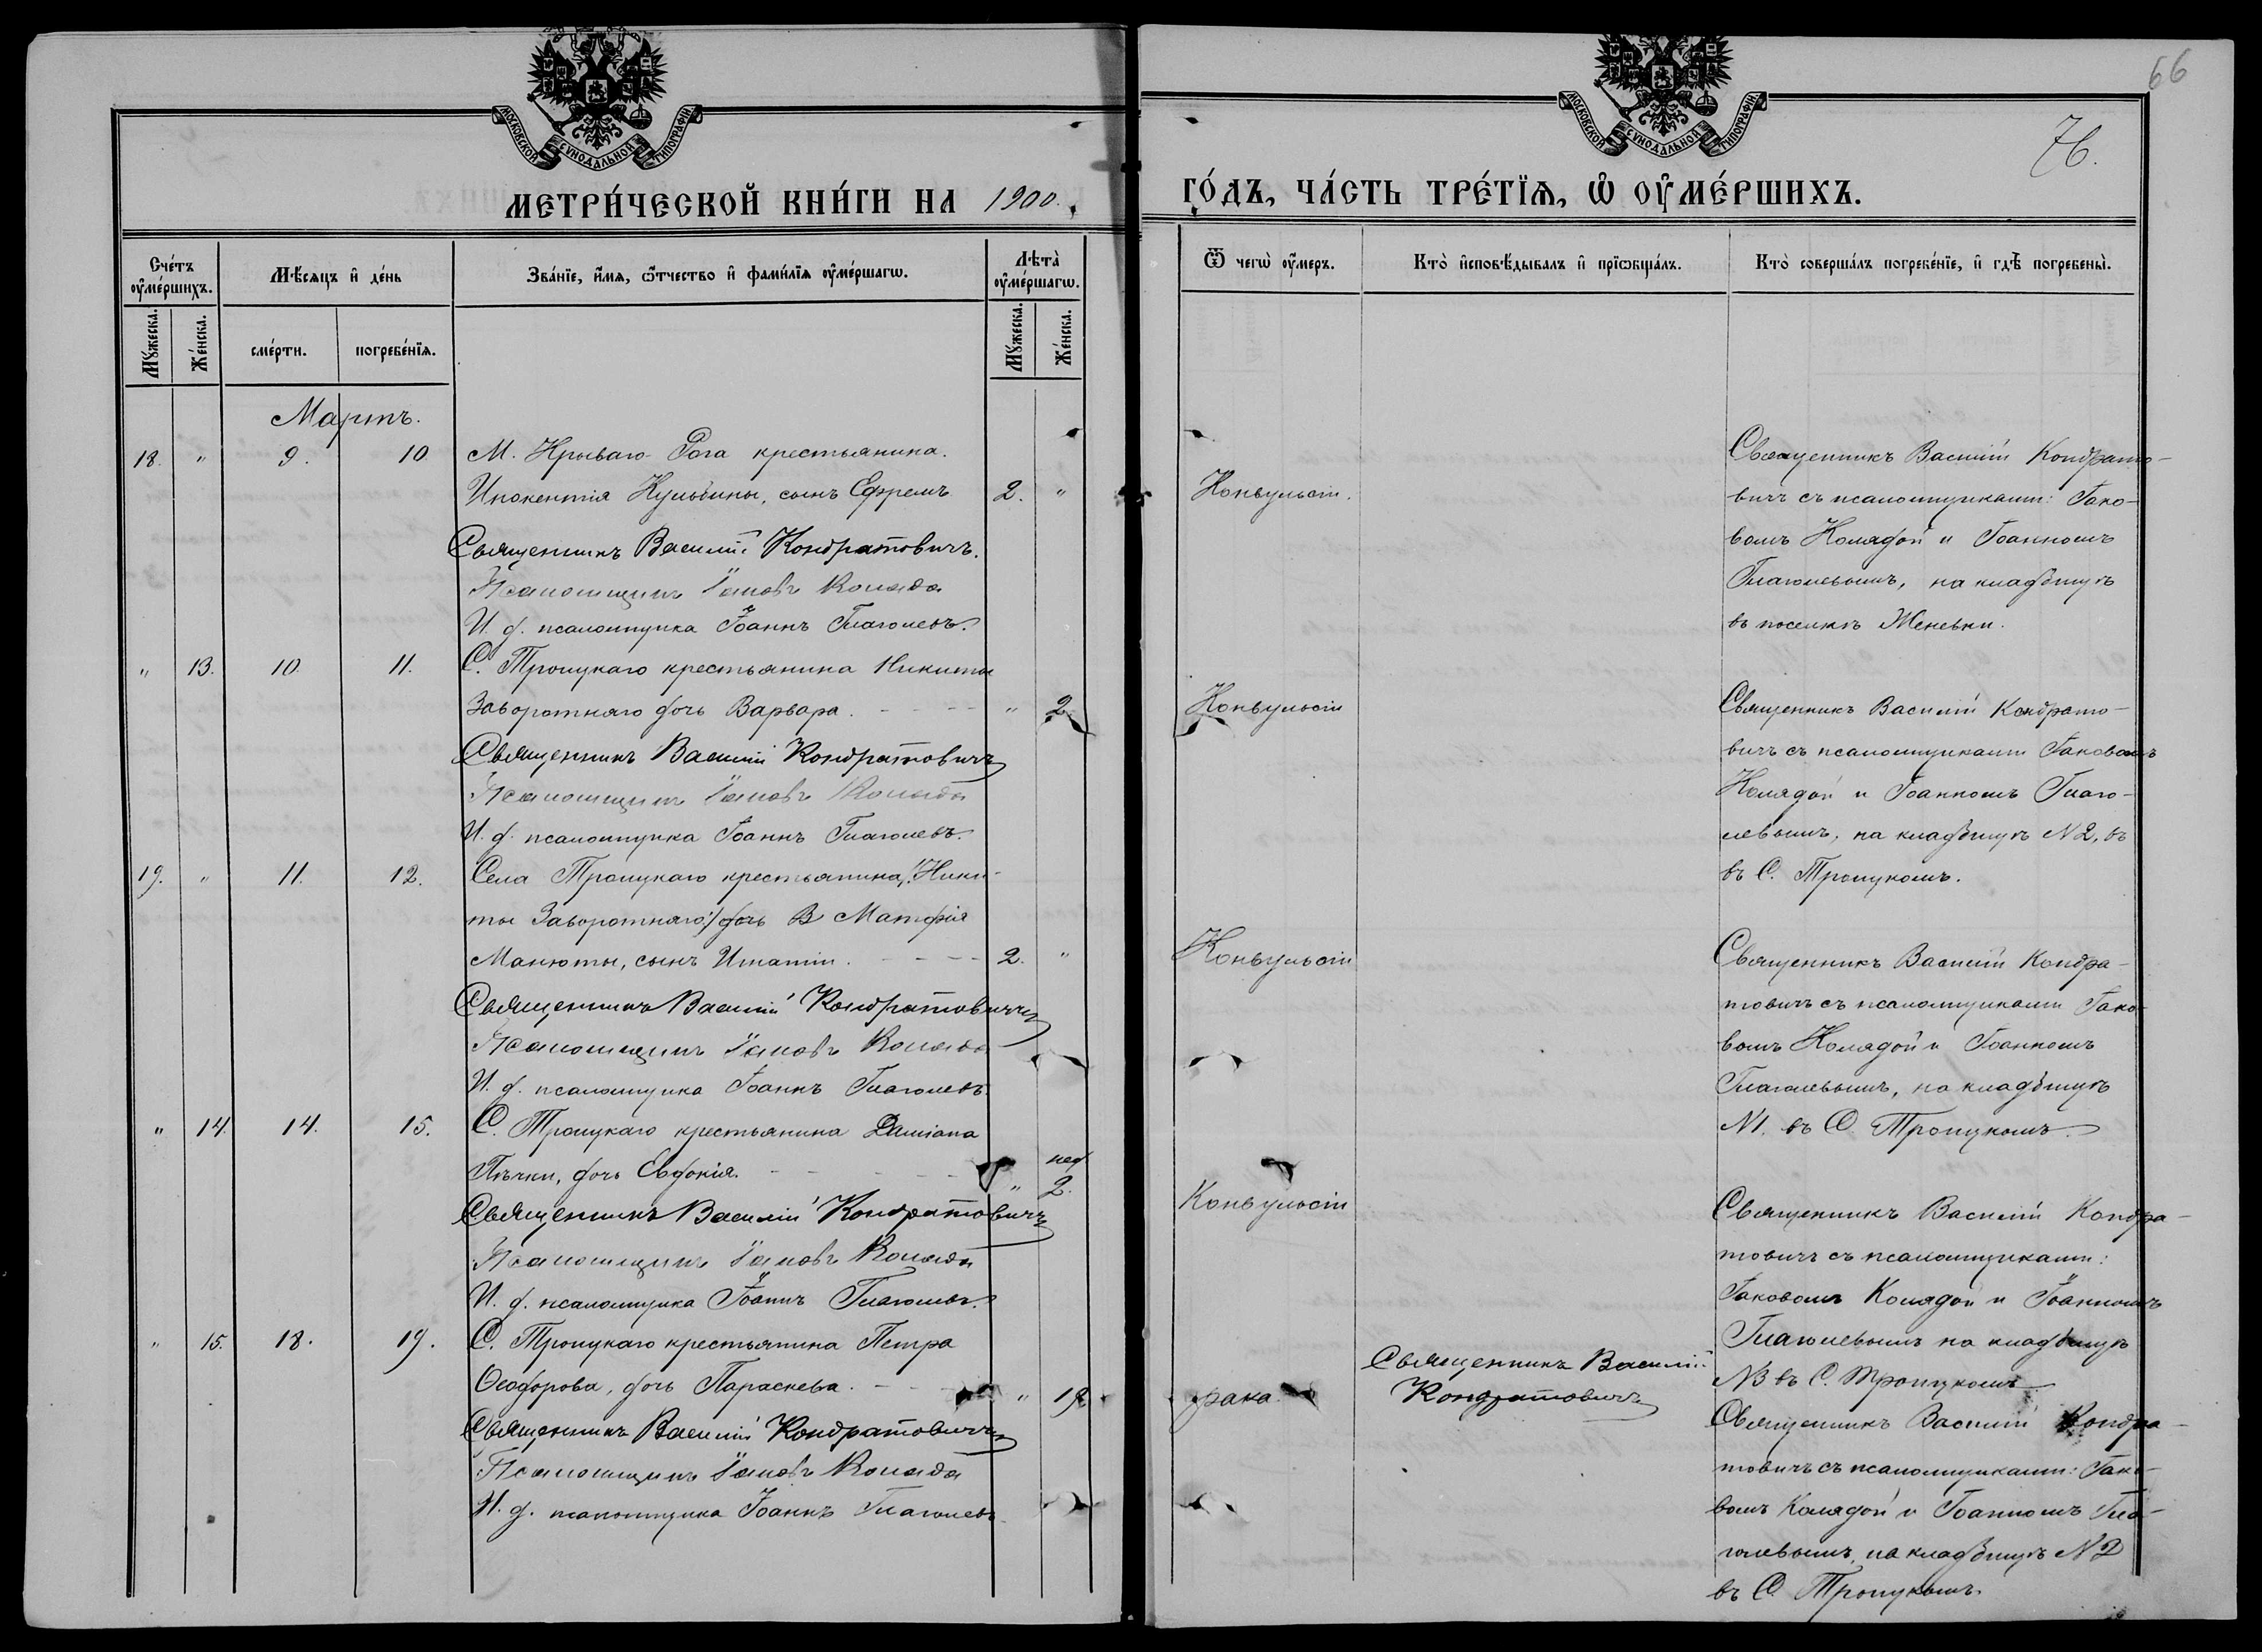 66
МОСКОВСКОЙ СѴНОДАЛЬНОЙ ТИПОГРАФІИ.
МОСКОВСКОЙ СѴНОДАЛЬНОЙ ТИПОГРАФІИ.
76.
МЕТРИ́ЧЕСКОЙ КНИ́ГИ НА 1900. ГО́ДЪ, ЧА́СТЬ ТРЕ́ТЇѦ, Ѡ҆ ОУ҆МЕ́РШИХЪ.
Сче́тъ оу҆ме́ршихъ.
Мѣ́сѧцъ и҆ де́нь
Зва́нїе, и҆́мѧ, ѻ҆́тчество и҆ фами́лїѧ оу҆ме́ршагѡ.
Лѣта̀ оу҆ме́ршагѡ.
Ѿ чегѡ̀ оу҆́меръ.
Кто̀ и҆сповѣ́дывалъ и҆ прїѡбща́лъ.
Кто̀ соверша́лъ погребе́нїе, и҆ гдѣ̀ погребены̀.
Мꙋ́жеска.
Же́нска.
сме́рти.
погребе́нїѧ.
Мꙋ́жеска.
Же́нска.
Мартъ.
18. " 9. 10. М. Криваго Рога крестьянина.
Инокентія Кульбины, сынъ Ефремъ 2. " Конвульсіи.
Священникъ Василій Кондратовичъ.
Псаломщикъ Іаковъ Коляда
И. д. псаломщика Іоаннъ Глаголевъ.
Священникъ Василій Кондрато-
вичъ съ псаломщиками: Іако-
вомъ Колядой и Іоанномъ
Глаголевымъ, на кладбищѣ
въ поселкѣ
" 13. 10. 11. С. Троицкаго крестьянина Никиты
Заворотняго дочь Варвара. " 2 Конвульсіи
Священникъ Василій Кондратовичъ
Псаломщикъ Іаковъ Коляда
И. д. псаломщика Іоаннъ Глаголевъ.
Священникъ Василій Кондрато-
вичъ съ псаломщиками Іаковомъ
Колядой и Іоанномъ Глаго-
левымъ, на кладбищѣ N 2, въ
въ С. Троицкомъ.
19. " 11. 12. Села Троицкаго крестьянина /:Ники-
ты Заворотняго:/ дочь В Матфія
Манюты, сынъ Игнатій. 2. " Конвульсіи
Священникъ Василій Кондратовичъ
Псаломщикъ Іаковъ Коляда
И. д. псаломщика Іоаннъ Глаголевъ.
Священникъ Василій Кондра-
товичъ съ псаломщиками Іако-
вомъ Колядой и Іоанномъ
Глаголевымъ, на кладбищѣ
N1. въ С. Троицкомъ.
" 14. 14. 15. С. Троицкаго крестьянина Даміана
дочь Евдокія. " нед 2. Конвульсіи
Священникъ Василій Кондратовичъ
Псаломщикъ Іаковъ Коляда
И. д. псаломщика Іоаннъ Глаголевъ.
Священникъ Василій Кондра-
товичъ съ псаломщиками:
Іаковомъ Колядой и Іоанномъ
Глаголевымъ на кладбищѣ
N3 въ С. Троицкомъ.
" 15. 18. 19. С. Троицкаго крестьянина Петра
Ѳеодорова, дочь Параскева. "
Священникъ Василій Кондратовичъ
Псаломщикъ Іаковъ Коляда
И. д. псаломщика Іоаннъ Глаголевъ
рака
Священникъ Василій
Кондратовичъ
Священникъ Василій Кондра-
товичъ съ псаломщиками: Іако-
вомъ Колядой и Іоанномъ Гла-
голевымъ, на кладбищѣ N 2
въ С. Троицкомъ.